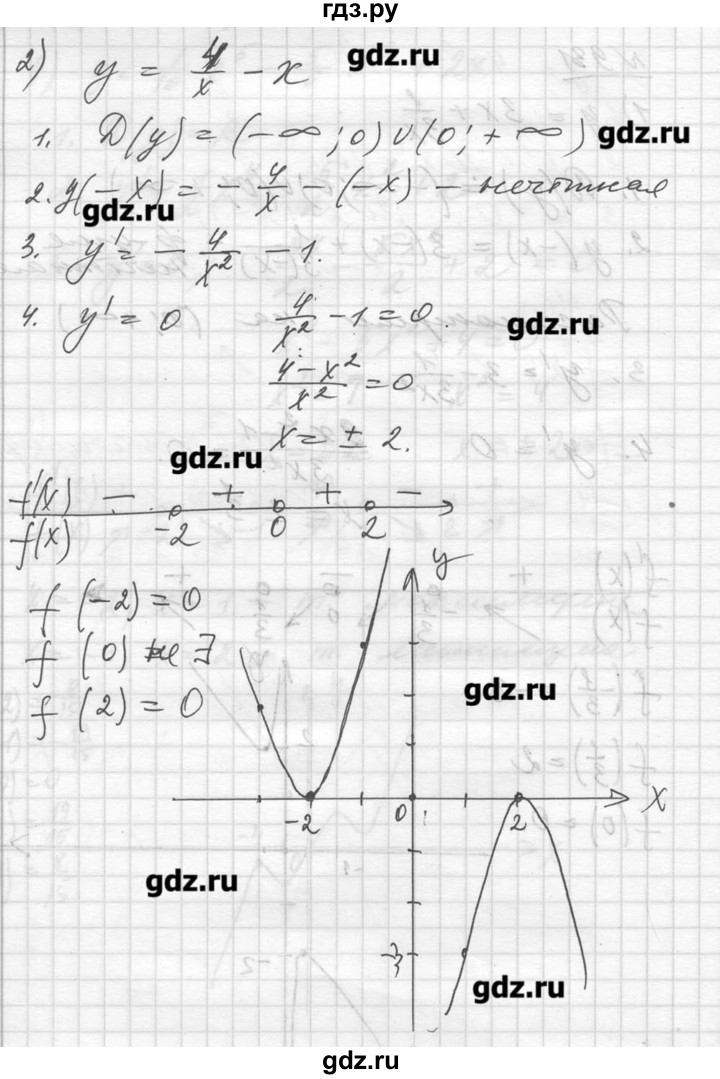 гдз.ру
2) y = 4/x - x
gdz.ru
1. D(y) = (-∞; 0) ∪ (0; +∞)
gdz.ru
2. y(-x) = - 4/x - (-x) - нечётная
gdz.ru
3. y' = - 4/x² - 1.
4. y' = 0 4/x² - 1 = 0.
gdz.ru
(4 - x²)/x² = 0
x = ± 2.
gdz.ru
f'(x) - + + -
f(x) -2 0 2
y
f (-2) = 0
f (0) не ∃
gdz.ru
f (2) = 0
-2 0 2 x
gdz.ru
-3
gdz.ru
gdz.ru